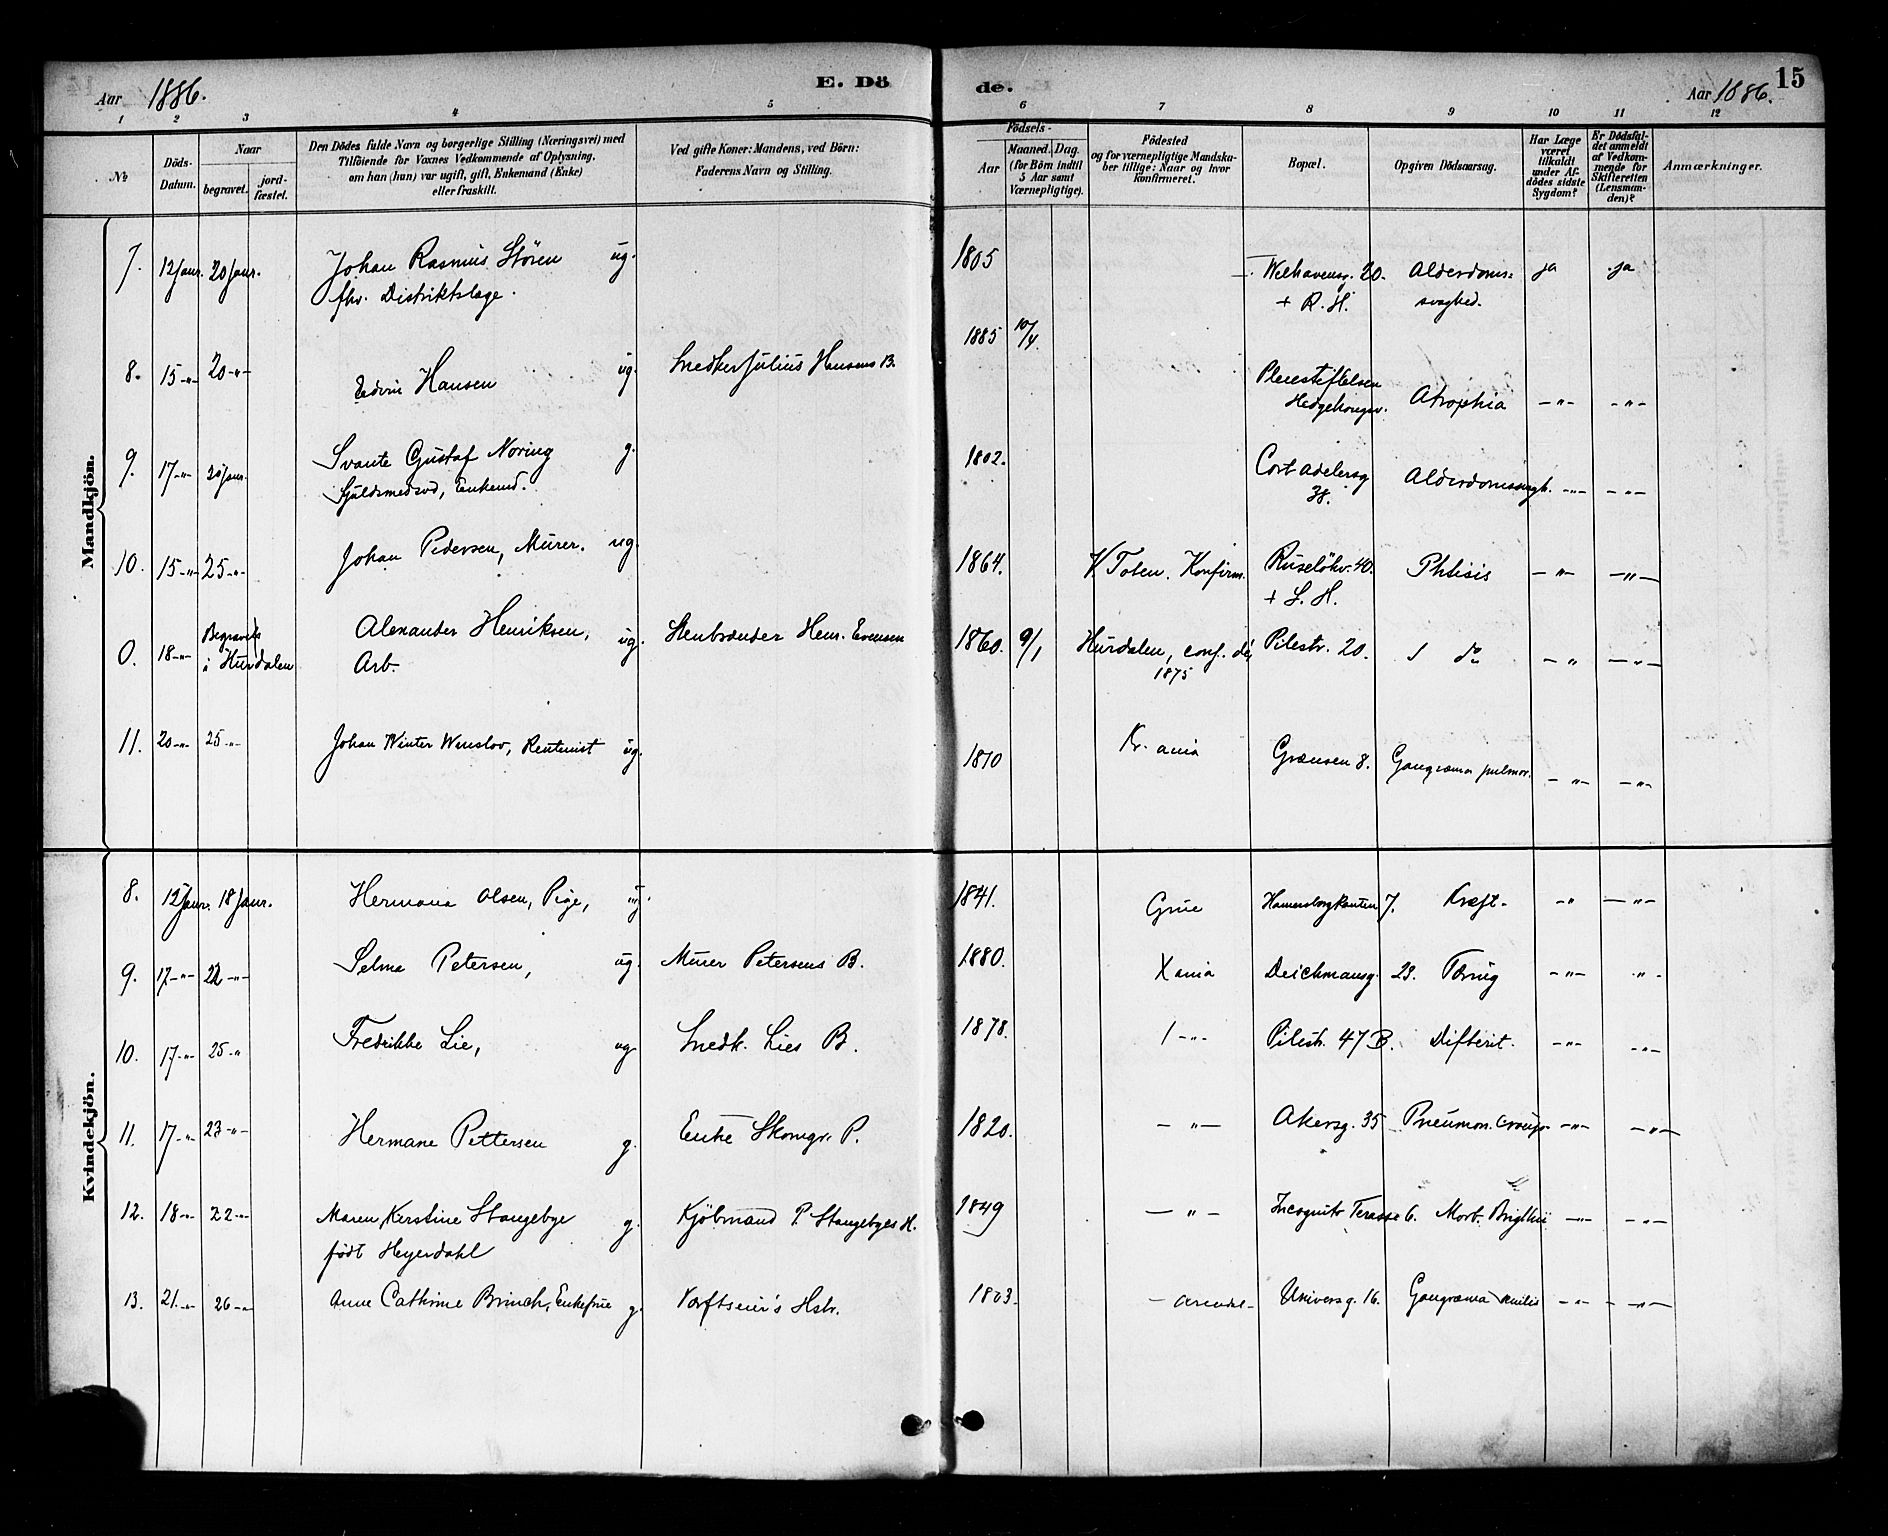 Aar 1886. E. Dö de. Aar 1886. 15
1 2 3 4 5 6 7 8 9 10 11 12
No
Döds-Datum.
Naar
begravet. jordfæstet.
Den Dödes fulde Navn og borgerlige Stilling (Næringsvei) med
Tilföiende for Voxnes Vedkommende af Oplysning,
om han (hun) var ugift, gift, Enkemand (Enke)
eller fraskilt.
Ved gifte Koner: Mandens, ved Börn:
Faderens Navn og Stilling.
Födsels-
Aar
Maaned. Dag.
(for Börn indtil
5 Aar samt
Værnepligtige).
Födested
og for værnepligtige Mandska-
ber tillige: Naar og hvor
konfirmeret.
Bopæl.
Opgiven Dödsaarsag.
Har Læge
været
tilkaldt
under Af-
dödes sidste
Sygdom?
Er Dödsfal-
det anmeldt
af Vedkom-
mende for
Skifteretten
(Lensman-
den)?
Anmærkninger.
Mandkjön.
7. 12 Janr. 20 Janr. Johan Rasmus Stören ug. 1805 — Welhavensg. 20. Alderdoms= ja ja
fhv. Distriktslæge. + R. H. svaghed.
8. 15 -"- 20 -"- Edvin Hansen ug. Snedker Julius Hansens B. 1885 10/4 Pleiestiftelsen
Hedgehougsv. Atrophia -"- -"-
9. 17 -"- 20 Janr. Svante Gustaf Noring g. 1802. Cort Adelersg
Guldsmedsvd, Enkemd. 38. Alderdomssvagh. -"- -"-
10. 15 -"- 25 -"- Johan Pedersen, Murer. ug. 1864. V. Toten. Konfirm. Ruselökv. 40. Phtisis -"- -"-
+ L. H.
0. 18 -"- Begravet Alexander Henriksen, ug. Stenbrænder Henr. Evensen 1860. 9/1 Hurdalen, conf. do, Pilestr. 20. do -" -"-
i Hurdalen Arb. 1875
11. 20 -"- 25 -"- Johan Winter Wensløv, Rentenist ug. 1810 Kr.ania Grænsen 8. Gangræna pulmon. -"- -"-
Kvindekjön.
8. 12 Janr. 18 Janr. Hermana Olsen, Pige, ug. 1841. Grue Hamersborgkanten 7. Kræft. -" -"-
9. 17 -"- 22 -"- Selma Petersen, ug. Murer Petersens B. 1880. Xania Deichmansg. 23. Tæring -"- -"-
10. 17 -"- 25 -" Fredrikke Lie, ug Snedk. Lies B. 1878. -"- Pilestr. 47 B. Difterit. -"- -"-
11. 17 -"- 23 -"- Hermane Pettersen g. Enke Skomgr. P. 1820. -"- Akersg. 35 Pneumon. croup. -"- -"-
12. 18 -"- 22 -"- Maren Kerstine Stangebye g. Kjöbmand P. Stangebyes H. 1849 -"- Incognito Terasse 6. Morb. Brightii -"- -"-
födt Heyerdahl
13. 21 -"- 26 -"- Anne Cathrine Brinch, Enkefrue g. Værftseier's Hstr. 1803 - Arendal - Universg. 16. Gangræna senilis -"- -"-